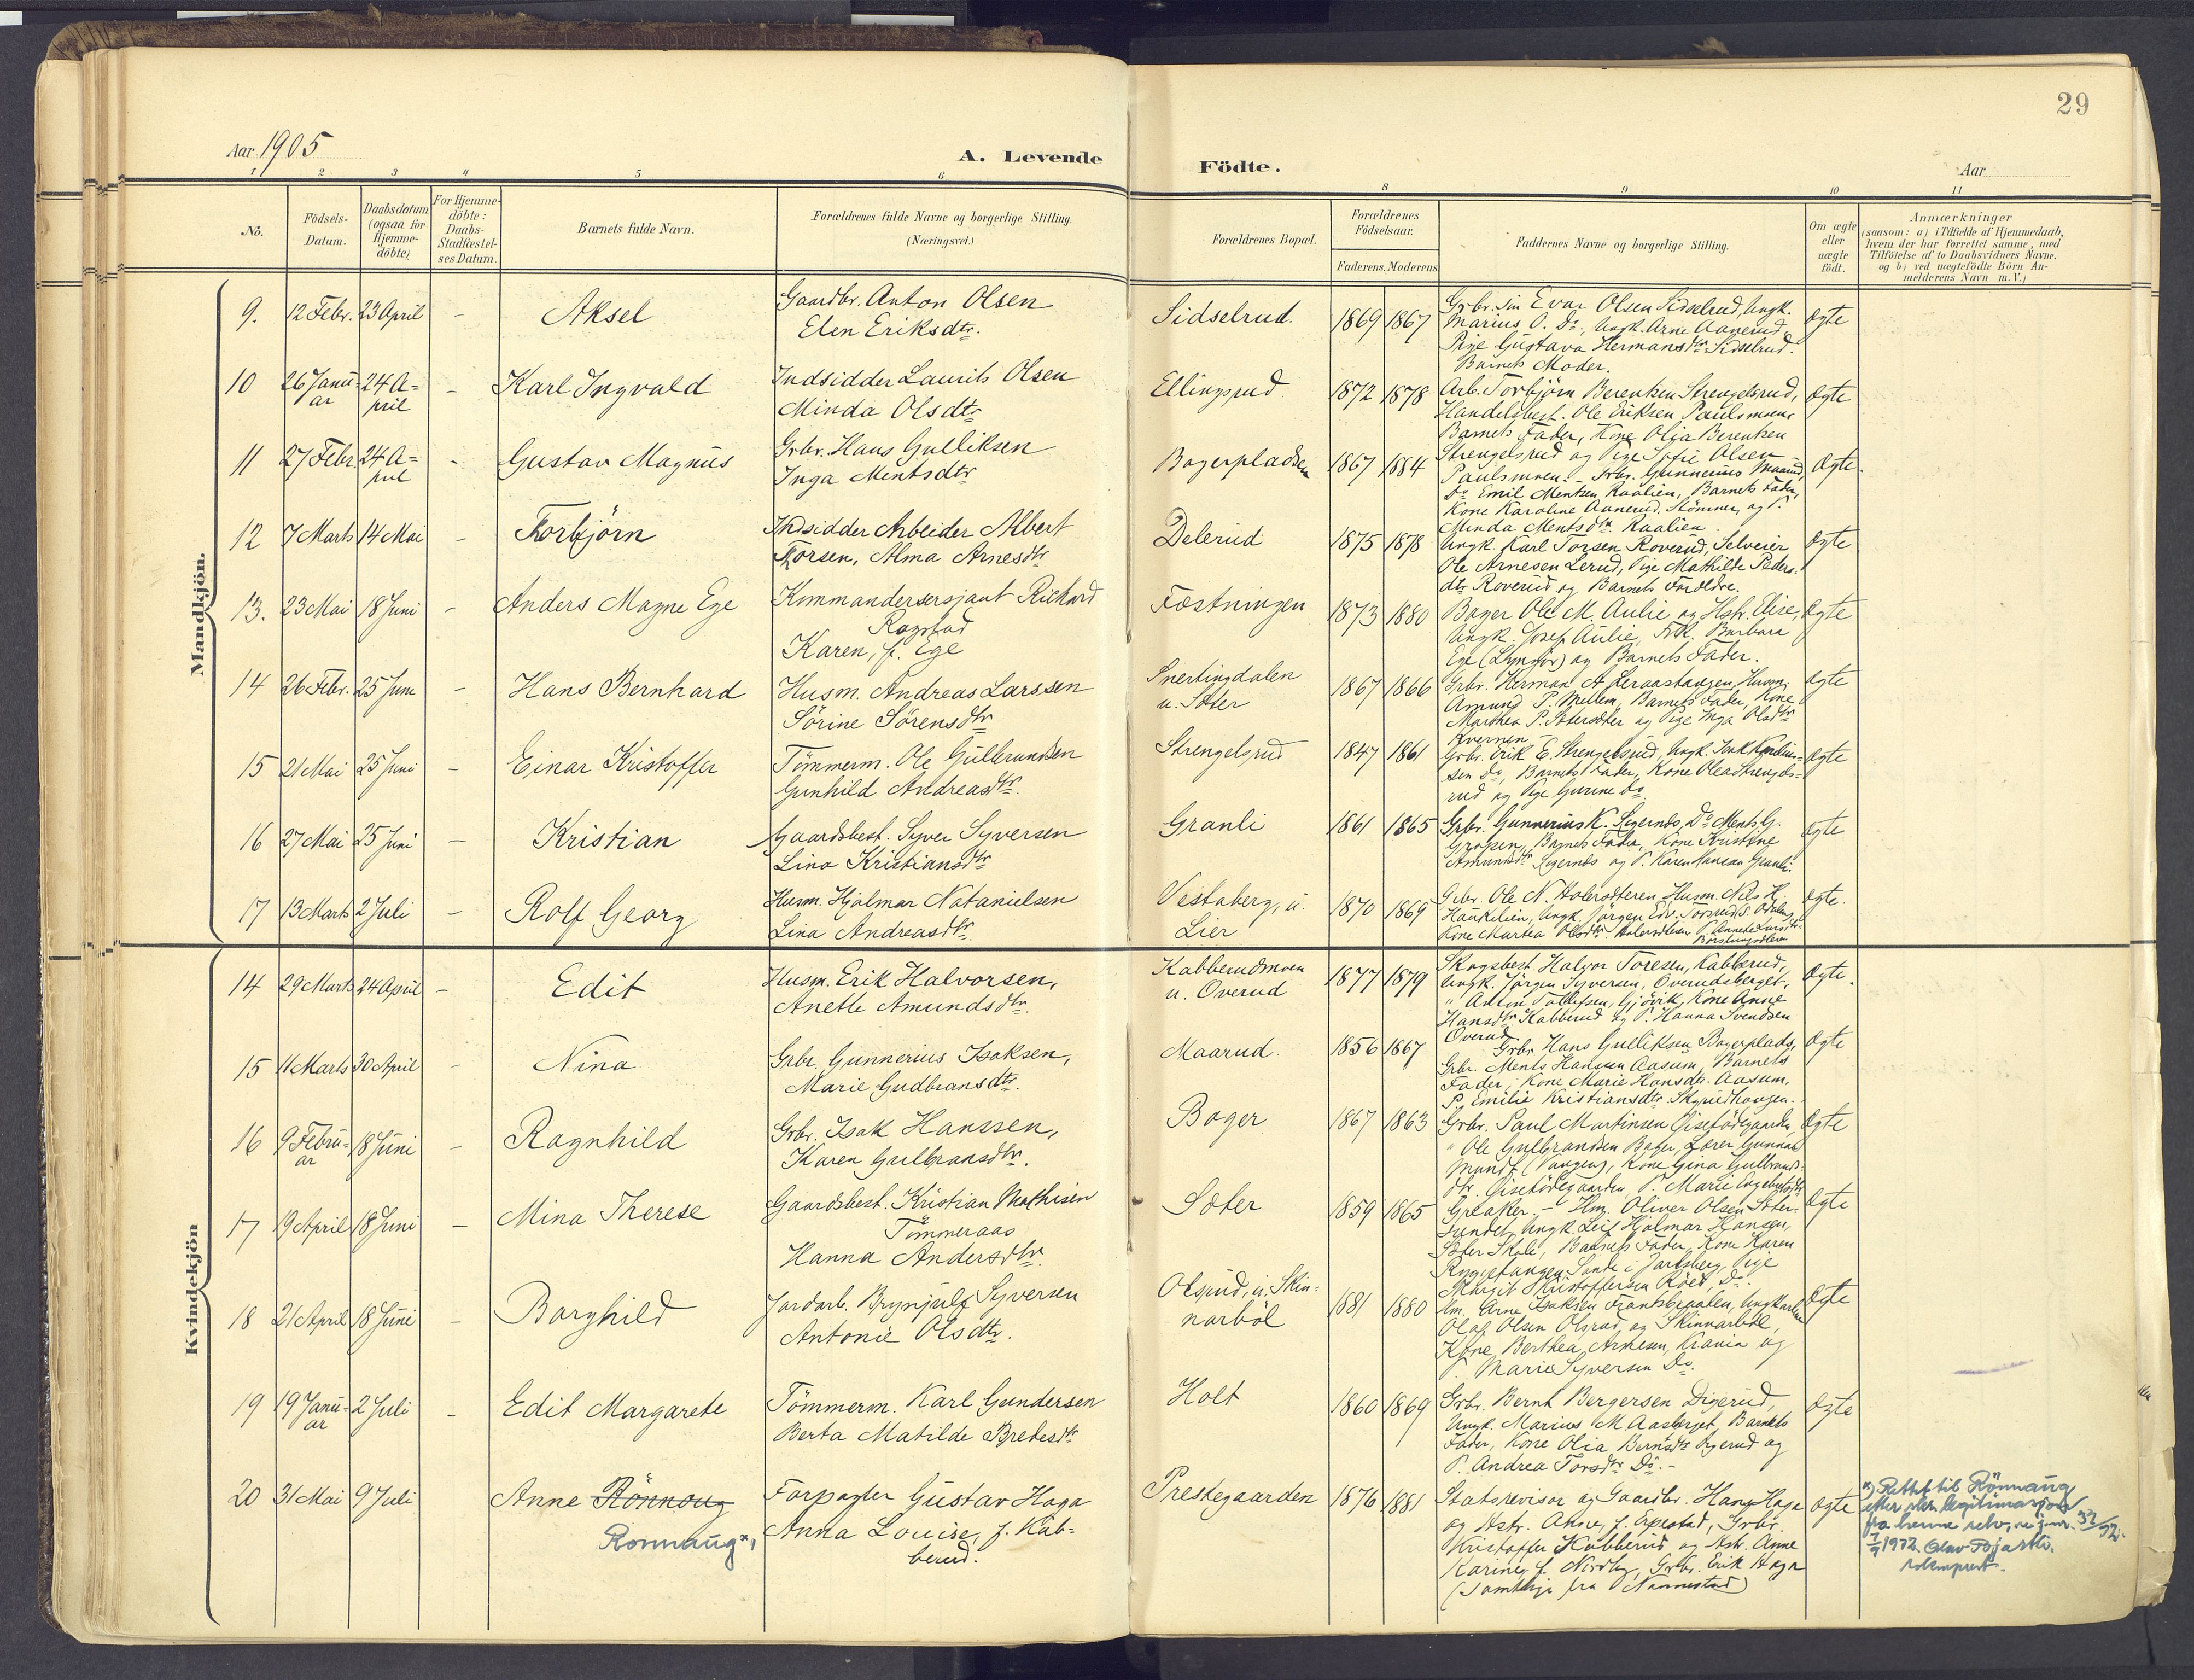 29
Aar 1905
A. Levende
Födte.
Aar
1 2 3 4 5 6
8 9 10 11
No.
Födsels-
Datum.
Daabsdatum
(ogsaa for
Hjemme-
döbte)
For Hjemme-
döbte:
Daabs-
Stadfæstel-
ses Datum.
Barnets fulde Navn.
Forældrenes fulde Navne og borgerlige Stilling.
(Næringsvei.)
Forældrenes Bopæl.
Forældrenes
Födselsaar.
Faderens. Moderens
Faddernes Navne og borgerlige Stilling.
Om ægte
eller
uægte
födt.
Anmærkninger
(saasom: a) i Tilfælde af Hjemmedaab,
hvem der har forrettet samme, med
Tilföielse af to Daabsvidners Navne.
og b) ved uægtefödte Börn An-
melderens Navn m. V.)
Mandkjön.
9. 12 Febr. 23 April - Aksel
Gaardbr. Anton Olsen
Elen Eriksdtr.
Sidselrud. 1869 1867
Grbr. sön Evar Olsen Sidselrud, Ungk.
Marius O. Do., Ungk. Arne Aanerud,
Pige Gustava Hermansdtr Sidselrud.
Barnets Moder.
Ægte
10 26 Janu-
ar
24 A=
pril
- Karl Ingvald
Indsidder Laurits Olsen
Minda Olsdtr
Ellingsrud 1872 1878
Arb. Torbjörn Berentsen Strengelsrud,
Handelsbest. Ole Eriksen Paulsmoen,
Barnets Fader, Kone Olia Berentsen
Strengelsrud og Pige Sofie Olsen
Paulsmoen.
Ægte
11 27 Febr. 24 A=
pril
- Gustav Magnus
Grbr. Hans Gulliksen
Inga Mentsdtr
Bagerpladsen 1867 1884
Grbr. Gunnerius Maarud,
Do Emil Mentsen Raalien, Barnets Fader,
Kone Karoline Aanerud, Strömmen, og P.
Minda Mentsdtr Raalien.
Ægte.
12 7 Marts 14 Mai - Torbjörn
Indsidder Arbeider Albert
Torsen, Alma Arnesdtr
Delerud 1875 1878
Ungk. Karl Torsen Roverud, Selveier
Ole Arnesen Lerud, Pige Mathilde Peders-
dtr Roverud og Barnets Forældre.
Ægte
13. 23 Mai 18 Juni - Anders Magne Ege
Kommandersersjant Richard
Rogstad
Karen, f. Ege
Fæstningen 1873 1880
Bager Ole M. Aulie og Hstr. Elise,
Ungk. Josef Aulie, Frk. Barbara
Ege (Lyngör) og Barnets Fader.
Ægte
14 26 Febr. 25 Juni - Hans Bernhard
Husm. Andreas Larssen
Sörine Sörensdtr
Snertingdalen
u. Sæter
1867 1866
Grbr. Herman A. Leraastangen, Husm.
Amund P. Mellem, Barnets Fader, Kone
Marthea P. Sætersæter og Pige Inga Olsdtr
Kvernen
Ægte
15 21 Mai 25 Juni - Einar Kristoffer
Tömmerm. Ole Gulbrandsen
Gunhild Andreasdtr.
Strengelsrud 1847 1861
Grbr. Erik E. Strengelsrud, Ungk. Isak Karelius-
sen Do, Barnets Fader, Kone Olea Strengels-
rud og Pige Gurine Do
Ægte
16 27 Mai 25 Juni - Kristian
Gaardsbest. Syver Syversen
Lina Kristiansdtr
Granli 1861 1865
Grbr. Gunnerius K. Sigernes, Do Ments G.
Grassen, Barnets Fader, Kone Kristine
Amundsdtr Sigernes og P. Karen Hansen Granli.
Ægte
17 13 Marts 2 Juli - Rolf Georg
Husm. Hjalmar Natanielsen
Lina Andreasdtr.
Vestaberg, u.
Lier
1870 1869
Grbr. Ole N. Holersæteren, Husm. Nils H.
Haukelien, Ungk. Jörgen Edv. Torsrud, S. Odalen,
Kone Martea Olsdtr Holersæteren, P. Annette
Ægte.
Kvindekjön
14 29 Marts 24 April - Edit
Husm. Erik Halvorsen,
Anette Amundsdtr.
Kabberudmoen
u. Overud
1877 1879
Skogsbest. Halvor Toresen, Kabberud,
Ungk. Jörgen Syversen, Overudsberget,
" Anton Tollefsen, Gjövik, Kone Anne
Hansdtr Kabberud og P. Hanna Svendsen
Overud.
Ægte.
15 11 Marts 30 April - Nina
Grbr. Gunnerius Isaksen,
Marie Gudbransdtr.
Maarud. 1856 1867
Grbr. Hans Gulliksen Bagerplads,
Grbr. Ments Hansen Aasum, Barnets
Fader, Kone Marie Hansdtr. Aasum,
P. Emilie Kristiansdtr Skyrudhaugen.
Ægte
16 9 Febru-
ar
18 Juni - Ragnhild
Grbr. Isak Hanssen,
Karen Gulbransdtr.
Bager 1867 1863
Grbr. Paul Martinsen Öisetödegaarden
" Ole Gulbrandsen Bager, Lærer Gunnar
Mundt (Vangen), Kone Gina Gulbrands-
dtr. Öisetödegaarden, P. Marie Engebretsdtr
Greaker.
Ægte
17 19 April 18 Juni - Mina Therese
Gaardsbest. Kristian Mathisen
Tömmeraas
Hanna Andersdtr.
Sæter 1859 1865
Hm. Oliver Olsen Sæter-
sundet, Ungk. Leif Hjalmar Hansen,
Sæter Skole, Barnets Fader, Kone Karen
Sande i Jarlsberg, Pige
Margit Kristoffersen Röed, Do.
Ægte
18 21 April 18 Juni - Borghild
Jordarb. Brynjulf Syversen
Antonie Olsdtr.
Olsrud, u. Skin-
narböl
1881 1880
Hm. Arne Isaksen Frantsbraaten, Ungkarlene
Olaf Olsen Olsrud, og Skinnarböl,
Kone Berthea Arnesen, Krania og
P. Marie Syversen Do.
Ægte
19 19 Janu-
ar
2 Juli - Edit Margarete
Tömmerm. Karl Gundersen
Berta Matilde Bredesdtr
Holt 1860 1869
Grbr. Bernt Bergersen Digerud,
Ungk. Marius M. Aasberget, Barnets
Fader, Kone Olia Berntsdtr Digerud og
P. Andrea Torsdtr Do.-
Ægte
20 31 Mai 9 Juli Anne Rönnoug
Ronnaug x)
Forpagter Gustav Haga
Anna Louise, f. Kab-
berud.
Prestegaarden 1876 1881
Statsrevisor og Gaardbr. Hans Haga
og Hstr. Anne, f. Opestad, Grbr.
Kristoffer Kabberud og Hstr. Anne
Karine, f. Nordby, Grbr. Erik Haga
(samtlige fra Nannestad)
Ægte
x) Rettet til Rönnaug
etter skr. legitimasjon
fra henne selv, se jour. 32/72.
7/9 1972. Olav
sokneprest.